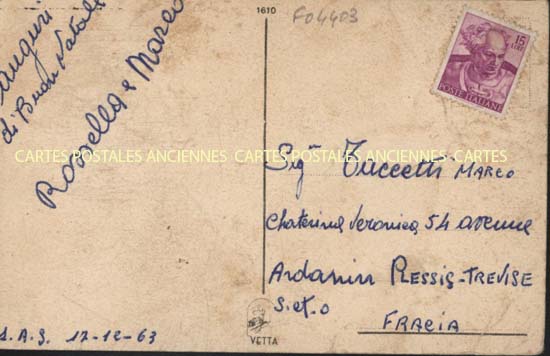 1610
F04403
auguri
di Buon Natale
Rossella e Marco
15
LIRE
POSTE ITALIANE
CARTES POSTALES ANCIENNES CARTES POSTALES ANCIENNES CARTES
Sig Tuccetti MARCO
Chaterine Veronica 54 avenue
Ardanin PLESSIS-TREVISE
S.et.O
FRACIA
S.A.S 17-12-63
VETTA